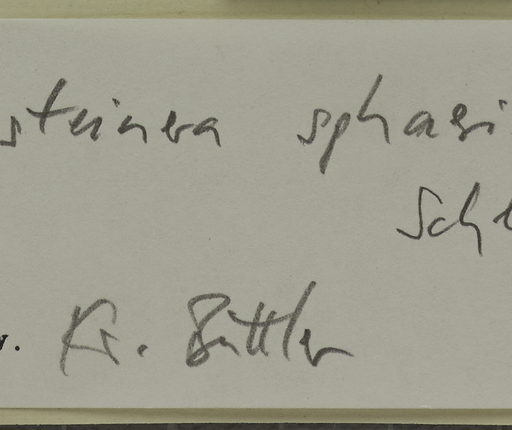 steinera sphaeri
Sch
v. Kr. Büttler